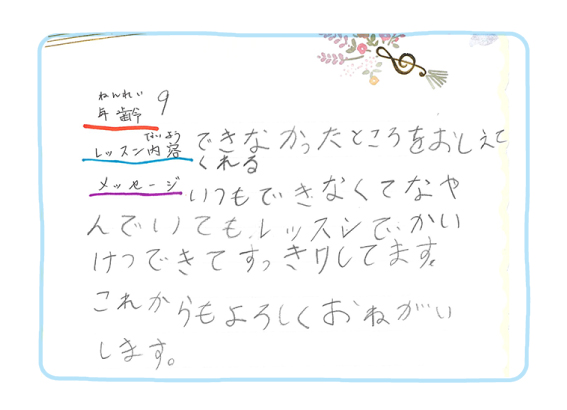 ねんれい
年齢 9
ないよう
レッスン内容 できなかったところをおしえて
くれる
メッセージ いつもできなくてなや
んでいても、レッスンで、かい
けつできてすっきりしてます。
これからもよろしくおねがい
します。